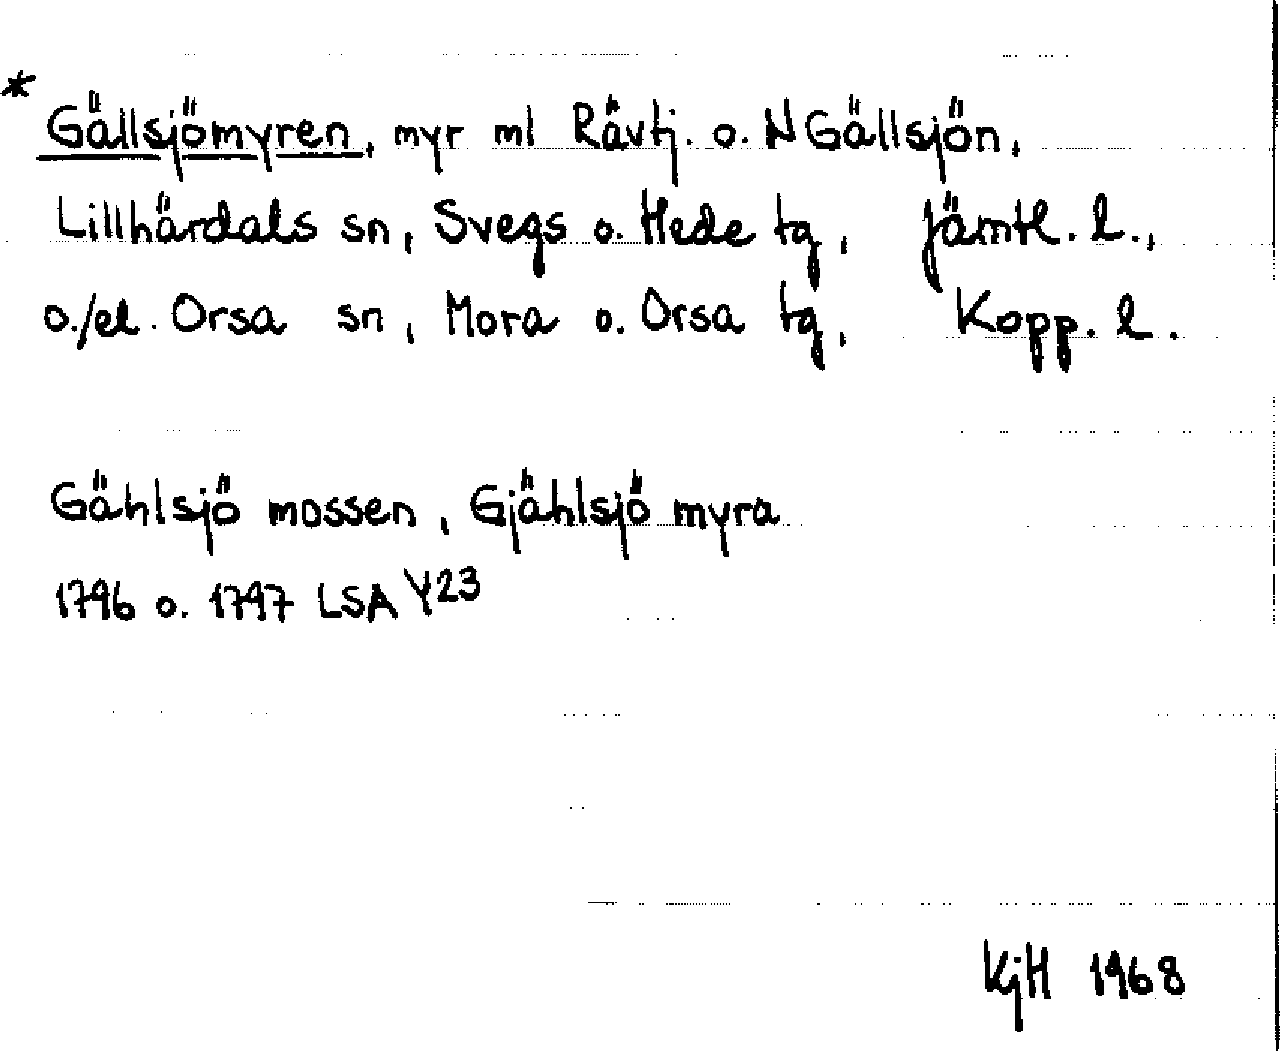 * Gällsjömyren, myr ml Rävtj. o. N Gällsjön,
Lillhärdals sn, Svegs o. Hede tg, Jämtl. l.,
o./el. Orsa sn, Mora o. Orsa tg, Kopp. l.
Gählsjö mossen, Gjählsjö myra
1796 o. 1797 LSA Y23
KjH 1968